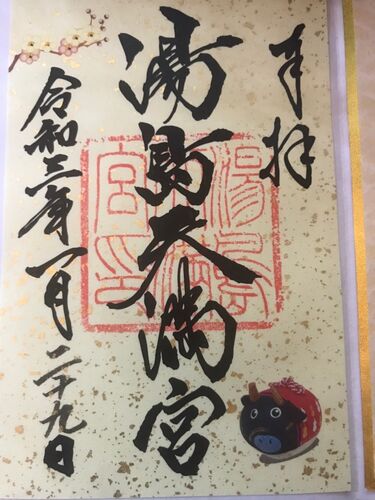 奉拝
湯島天満宮
令和三年一月二十九日
湯島天満宮印